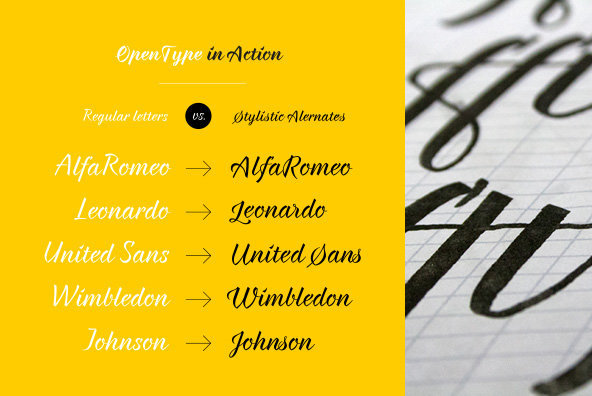 OpenType in Action
Regular letters vs. Stylistic Alernates
AlfaRomeo → AlfaRomeo
Leonardo → Leonardo
United Sans → United Sans
Wimbledon → Wimbledon
Johnson → Johnson